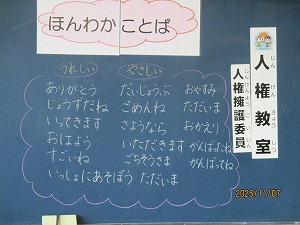 ほんわかことば
うれしい
ありがとう
じょうずだね
いってきます
おはよう
すごいね
いっしょにあそぼう
やさしい
だいじょうぶ
ごめんね
さようなら
いただきます
ごちそうさま
ただいま
おやすみ
ただいま
おかえり
がんばったね
がんばってね
人権教室
じんけんきょうしつ
人権擁護委員
じんけんようごいいん
2025/11/07